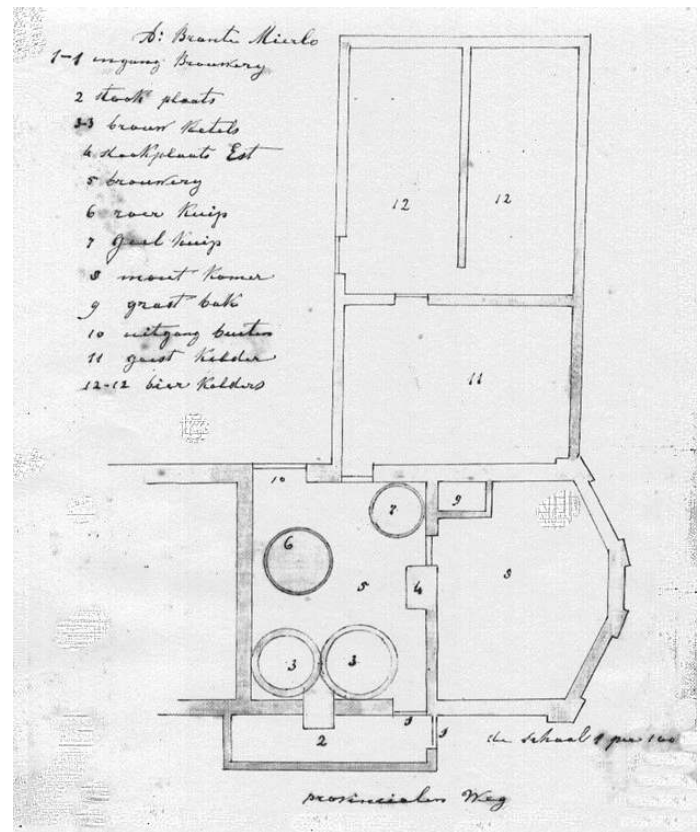 A: Brants Mierlo
1-1 ingang Brouwery
2 stook plaats
3-3 brouw Ketels
4 stookplaats Est
5 brouwery
6 roer Kuip
7 geel Kuip
8 mout Kamer
9 grast bak
10 uitgang buiten
11 geist Kelder
12-12 bier Kelders
12
12
11
10
7
9
6
5
4
8
3
3
1
1
2
de schaal 1 per 100
provincialen Weg